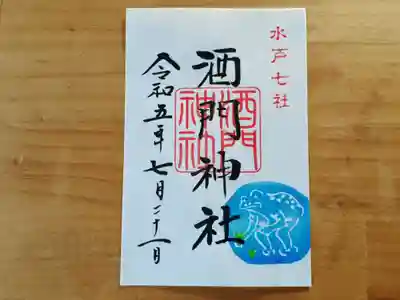 水戸七社
酒門神社
酒門
神社
令和五年七月二十一日